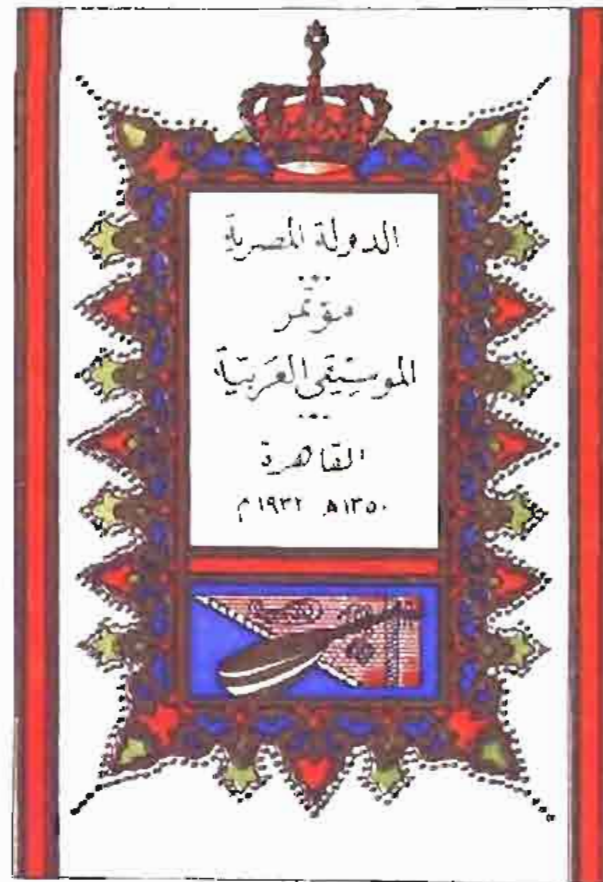 الدولة المصرية
مؤتمر
الموسيقى العربية
القاهرة
١٣٥٠ ه ١٩٣٢ م